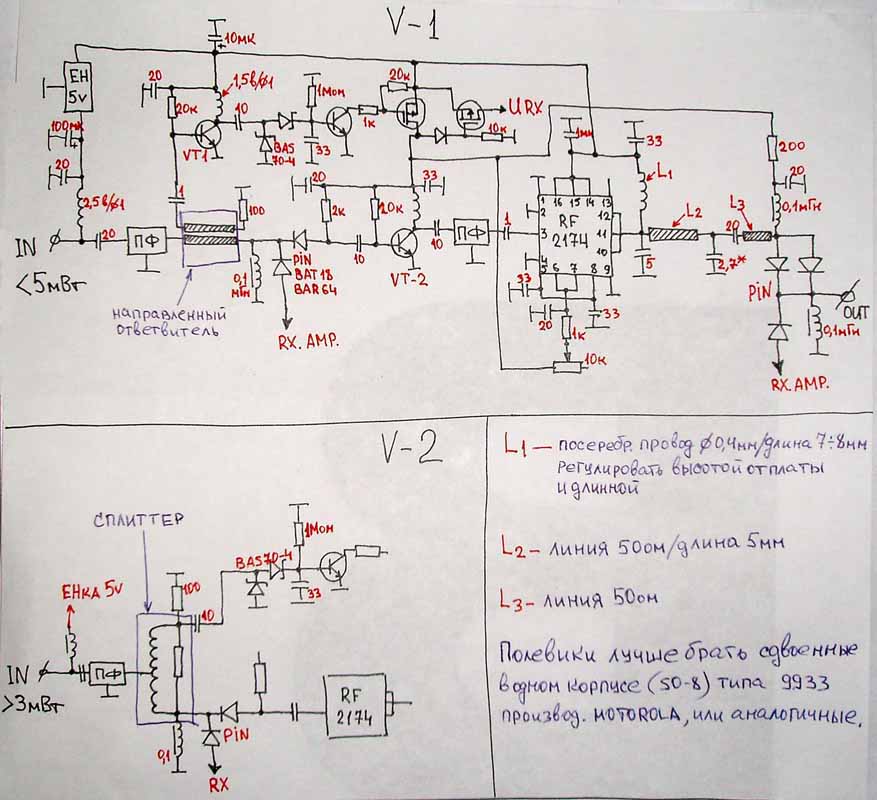 V-1
10мк
ЕН
5V
20
20к
1,5в/ø1
10
1Мом
20к
1к
URX
10к
100мк
BAS
70-4
33
VT1
1мк
33
200
20
L1
20
33
L2
L3
20
0,1мГн
2,5в/ø1
1
100
2к
20к
16 15 14 13
1
2
3
4
5 6 7 8 9
12
11
10
RF
2174
IN
20
ПФ
10
10
ПФ
1
VT-2
<5мВт
0,1
мГн
PiN
BAT18
BAR64
33
20
33
5
2,7*
PiN
OUT
0,1мГн
направленный
ответвитель
RX. AMP.
1к
10к
RX. AMP.
V-2
L1 — посеребр. провод ø0,4мм/длина 7÷8мм
Регулировать высотой от платы
и длинной
сплиттер
1Мом
BAS70-4
33
L2 – линия 50ом/длина 5мм
ЕНка 5V
100
10
L3 – линия 50ом
IN
ПФ
>3мВт
RF
2174
PiN
0,1
RX
Полевики лучше брать сдвоенные
в одном корпусе (SO-8) типа 9933
производ. MOTOROLA, или аналогичные.